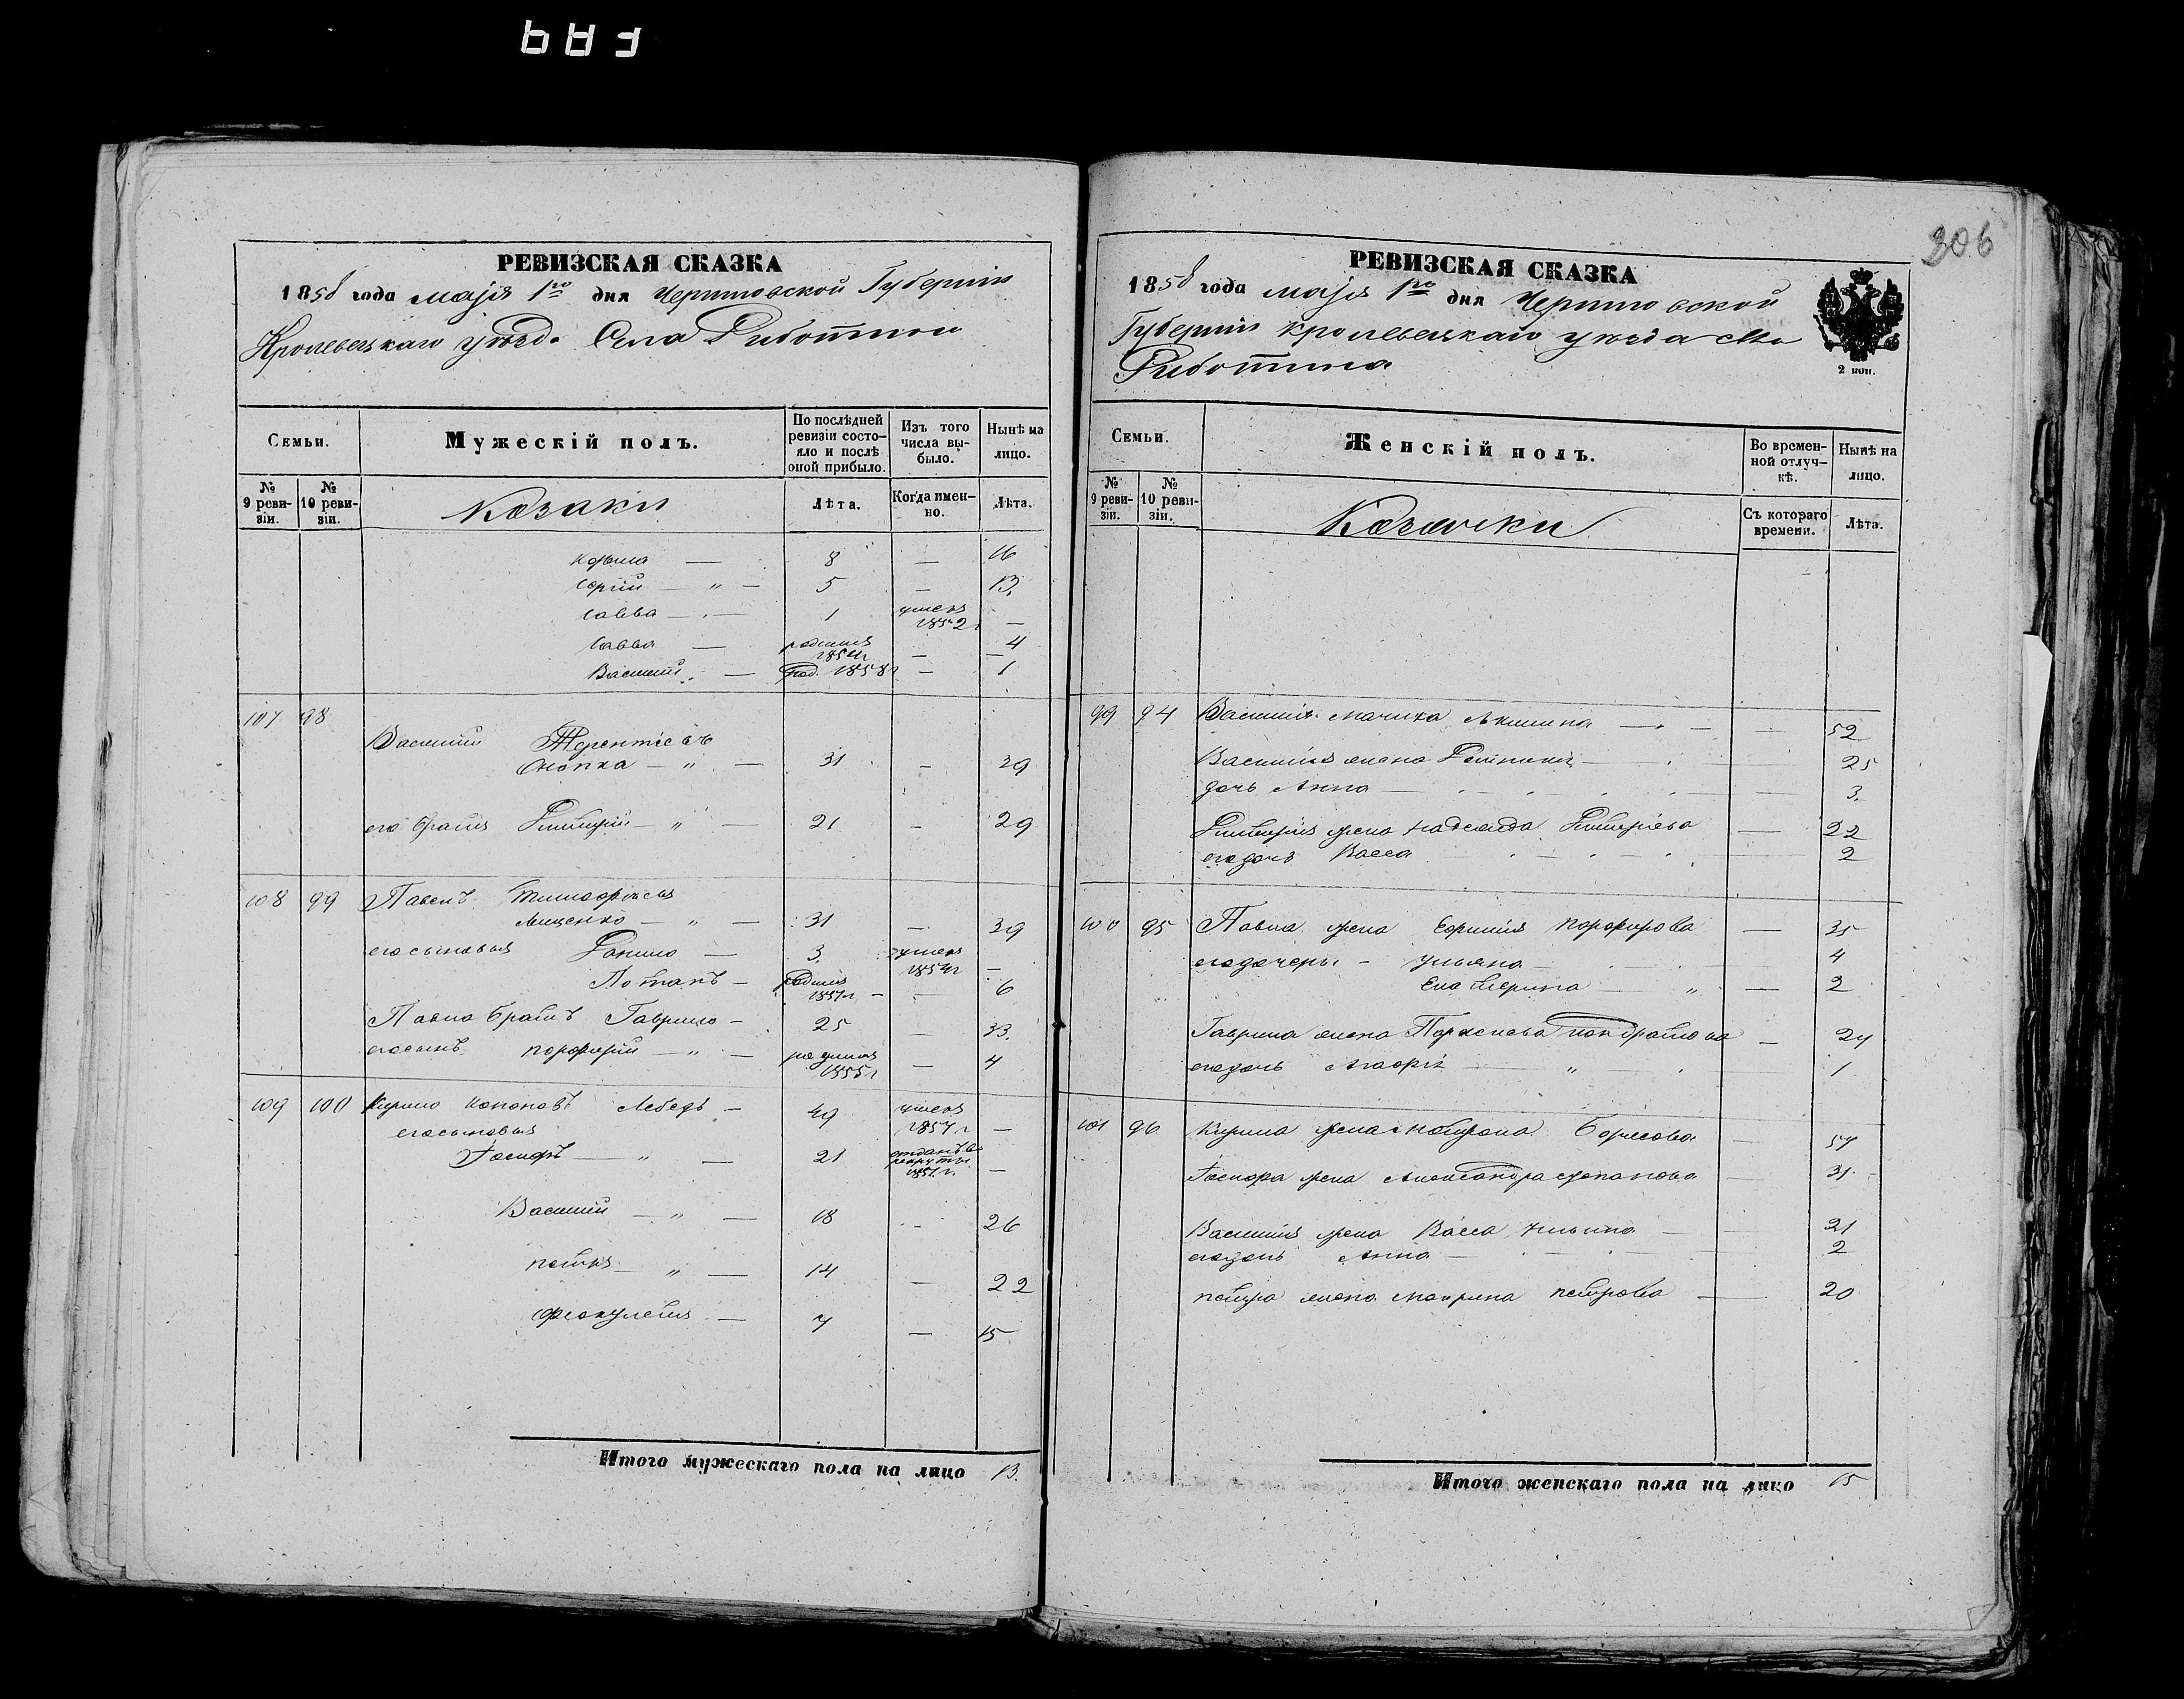 РЕВИЗСКАЯ СКАЗКА
1858 года маія 1го дня Черниговской Губерніи
Кролевецкаго уѣзда Села
Семьи.
№ 9 ревизіи.
№ 10 ревизіи.
Мужескій полъ.
Козаки
По послѣдней ревизіи состояло и послѣ оной прибыло.
Лѣта.
Изъ того числа выбыло.
Когда именно.
Нынѣ на лицо.
Лѣта.
Козьма — 8 — 16
Сергій — " — 5 — 13
Савва — 1 умеръ 1852 —
Савва — родился 1854г — 4
Василій — род. 1858г — 1
107 98
Василій Терентіевъ
— " — 31 — 39
его братъ Дмитрій — " — 21 — 29
108 99 Павелъ Тимофѣевъ
Лященко — " — 31 — 39
его сыновья Данило — 3 умеръ 1854г —
Потапъ — родился — 6
Павла братъ Гаврило — 25 — 33
его сынъ Порфирій — " — родился 1855г — 4
109 100 Кирило Кононовъ Лебедь — 49 умеръ 1857г —
его сыновья
Іосифъ — " — 21 отданъ въ рекруты —
Василій — " — 18 26
Петръ — " — 14 — 22
Феоктистъ — 7 — 15
Итого мужескаго пола на лицо 13.
206
РЕВИЗСКАЯ СКАЗКА
1858 года маія 1го дня Черниговской
Губерніи Кролевецкаго уѣзда
2 коп.
Семьи.
№ 9 ревизіи.
№ 10 ревизіи.
Женскій полъ.
Козачки
Во временной отлучкѣ.
Съ котораго времени.
Нынѣ на лицо.
Лѣта.
99 94 Василія мачиха Акилина — 52
Василія жена — 25
дочь Анна — 3
Дмитрія жена Надежда Дмитріева — 22
его дочь Васса — 2
100 95 Павла жена Порфирова — 35
его дочери — Ульяна — 4
Екатерина — " — 2
Гаврила жена Кондратова — 24
его дочь Агафія — " 1
101 96 Кирила жена Матрона Борисова — 57
Іосифа жена Александра Степанова — 31
Василія жена Васса Ильина — 21
его дочь Анна — 2
Петра жена Марина Петрова — 20
Итого женскаго пола на лицо 15